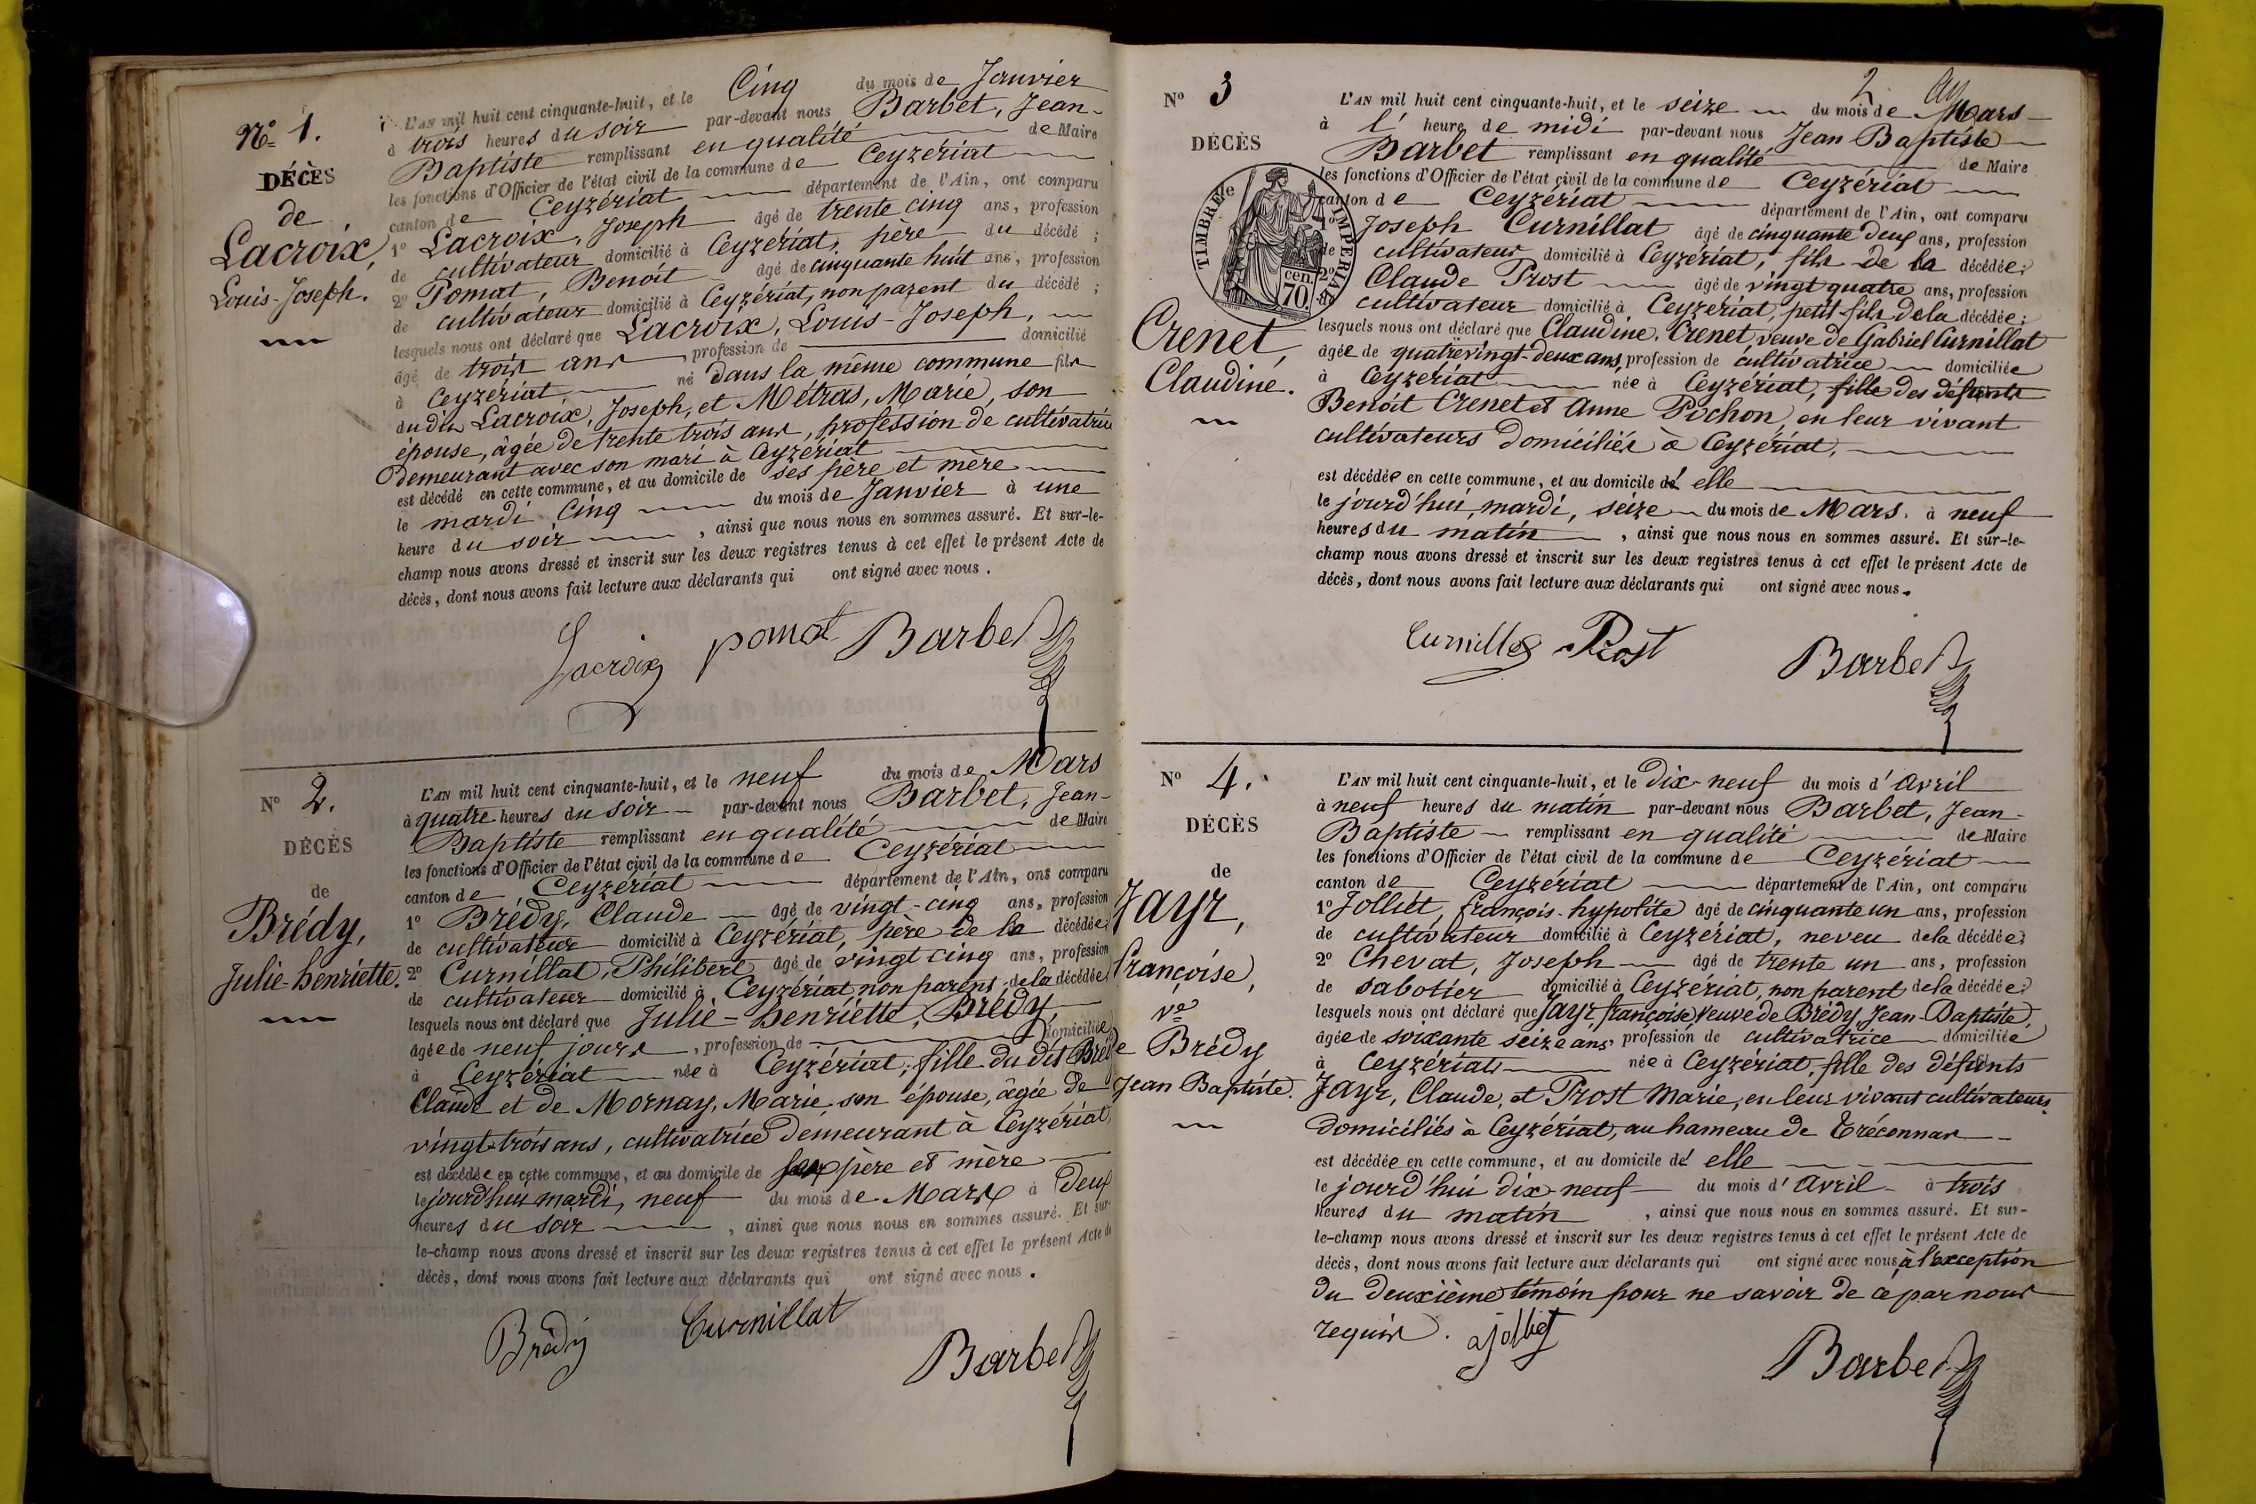 Nº 1.
DÉCÈS
de
Lacroix,
Louis-Joseph.
L'AN mil huit cent cinquante-huit, et le Cinq du mois de Janvier
à trois heures du soir par-devant nous Barbet, Jean-
Baptiste remplissant en qualité de Maire
les fonctions d'Officier de l'état civil de la commune de Ceyzériat
canton de Ceyzériat département de l'Ain, ont comparu
1º Lacroix, Joseph âgé de trente cinq ans, profession
de cultivateur domicilié à Ceyzériat, père du décédé ;
2º Pomat, Benoît âgé de cinquante huit ans, profession
de cultivateur domicilié à Ceyzériat, non parent du décédé ;
lesquels nous ont déclaré que Lacroix, Louis-Joseph,
âgé de trois ans profession de domicilié
à Ceyzériat né dans la même commune fils
du dit Lacroix, Joseph, et Métras, Marie, son
épouse, âgée de trente trois ans, profession de cultivatrice
Demeurant avec son mari à Ceyzériat
est décédé en cette commune, et au domicile de ses père et mère
le mardi cinq du mois de Janvier à une
heure du soir , ainsi que nous nous en sommes assuré. Et sur-le-
champ nous avons dressé et inscrit sur les deux registres tenus à cet effet le présent Acte de
décès, dont nous avons fait lecture aux déclarants qui ont signé avec nous.
Lacroix pomat Barbet
Nº 2.
DÉCÈS
de
Brédy,
Julie-henriette.
L'AN mil huit cent cinquante-huit, et le neuf du mois de Mars
à quatre heures du soir par-devant nous Barbet, Jean-
Baptiste remplissant en qualité de Maire
les fonctions d'Officier de l'état civil de la commune de Ceyzériat
canton de Ceyzériat département de l'Ain, ont comparu
1º Brédy, Claude âgé de vingt-cinq ans, profession
de cultivateur domicilié à Ceyzériat, père de la décédée;
2º Curnillat, Philibert âgé de vingt cinq ans, profession
de cultivateur domicilié à Ceyzériat, non parent de la décédée;
lesquels nous ont déclaré que Julie-henriette, Brédy,
âgée de neuf jours , profession de domiciliée
à Ceyzériat née à Ceyzériat, fille du dit Brédy
Claude et de Mornay, Marie, son épouse, âgée de
vingt-trois ans, cultivatrice Demeurant à Ceyzériat,
est décédée en cette commune, et au domicile de ses père et mère
le jourd'hui mardi, neuf du mois de Mars à Deux
heures du soir , ainsi que nous nous en sommes assuré. Et sur-
le-champ nous avons dressé et inscrit sur les deux registres tenus à cet effet le présent Acte de
décès, dont nous avons fait lecture aux déclarants qui ont signé avec nous.
Brédy Curnillat Barbet
2
Nº 3
DÉCÈS
TIMBRE IMPERIAL
70 cen.
Crenet,
Claudine.
L'AN mil huit cent cinquante-huit, et le seize du mois de Mars
à l' heure de midi par-devant nous Jean Baptiste
Barbet remplissant en qualité de Maire
les fonctions d'Officier de l'état civil de la commune de Ceyzériat
canton de Ceyzériat département de l'Ain, ont comparu
1º Joseph Curnillat âgé de cinquante deux ans, profession
de cultivateur domicilié à Ceyzériat, fils de la décédée;
2º Claude Prost âgé de vingt quatre ans, profession
cultivateur domicilié à Ceyzériat, petit-fils de la décédée;
lesquels nous ont déclaré que Claudine, Crenet, veuve de Gabriel Curnillat
âgée de quatrevingt-deux ans, profession de cultivatrice domiciliée
à Ceyzériat née à Ceyzériat, fille des défunts
Benoît Crenet et Anne Pochon, en leur vivant
cultivateurs Domiciliés à Ceyzériat,
est décédée en cette commune, et au domicile d' elle
le jourd'hui mardi, seize du mois de Mars à neuf
heures du matin , ainsi que nous nous en sommes assuré. Et sur-le-
champ nous avons dressé et inscrit sur les deux registres tenus à cet effet le présent Acte de
décès, dont nous avons fait lecture aux déclarants qui ont signé avec nous.
Curnillat Prost Barbet
Nº 4.
DÉCÈS
de
Jayr,
françoise,
ve
Brédy
Jean Baptiste.
L'AN mil huit cent cinquante-huit, et le Dix-neuf du mois d'avril
à neuf heures du matin par-devant nous Barbet, Jean-
Baptiste remplissant en qualité de Maire
les fonctions d'Officier de l'état civil de la commune de Ceyzériat
canton de Ceyzériat département de l'Ain, ont comparu
1º Jolliet, françois-hypolite âgé de cinquante un ans, profession
de cultivateur domicilié à Ceyzériat, neveu de la décédée;
2º Chevat, Joseph âgé de trente un ans, profession
de sabotier domicilié à Ceyzériat, non parent de la décédée;
lesquels nous ont déclaré que Jayr, françoise, veuve de Brédy, Jean-Baptiste,
âgée de soixante seize ans, profession de cultivatrice domiciliée
à Ceyzériat, née à Ceyzériat, fille des défunts
Jayr, Claude, et Prost Marie, en leur vivant cultivateurs
Domiciliés à Ceyzériat, au hameau de Tréconnas
est décédée en cette commune, et au domicile d' elle
le jourd'hui dix-neuf du mois d'avril à trois
heures du matin , ainsi que nous nous en sommes assuré. Et sur-
le-champ nous avons dressé et inscrit sur les deux registres tenus à cet effet le présent Acte de
décès, dont nous avons fait lecture aux déclarants qui ont signé avec nous, à l'exception
du Deuxième témoin pour ne savoir de ce par nous
requis. Jolliet Barbet